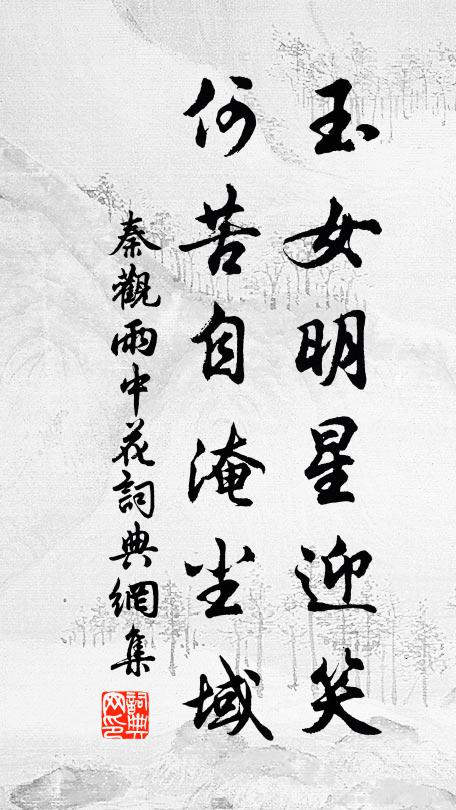 玉女明星迎笑
何苦自淹尘域
秦觀雨中花詞典網集
詞典網印